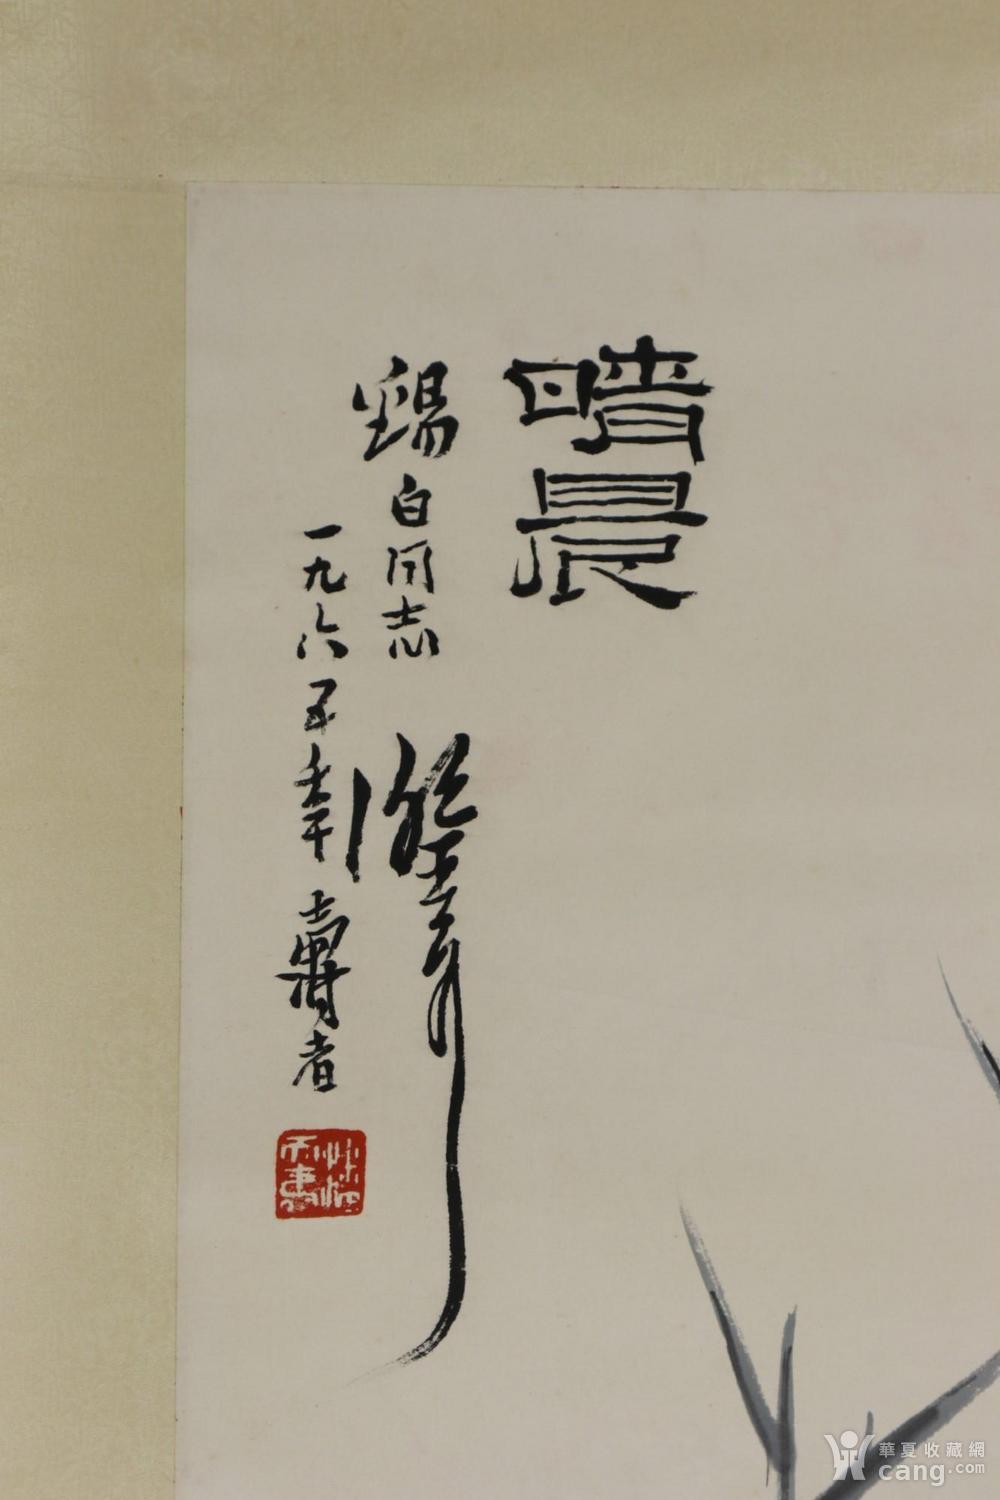 晴晨
錫白同志
一九六五年壽者
華夏收藏網
cang.com